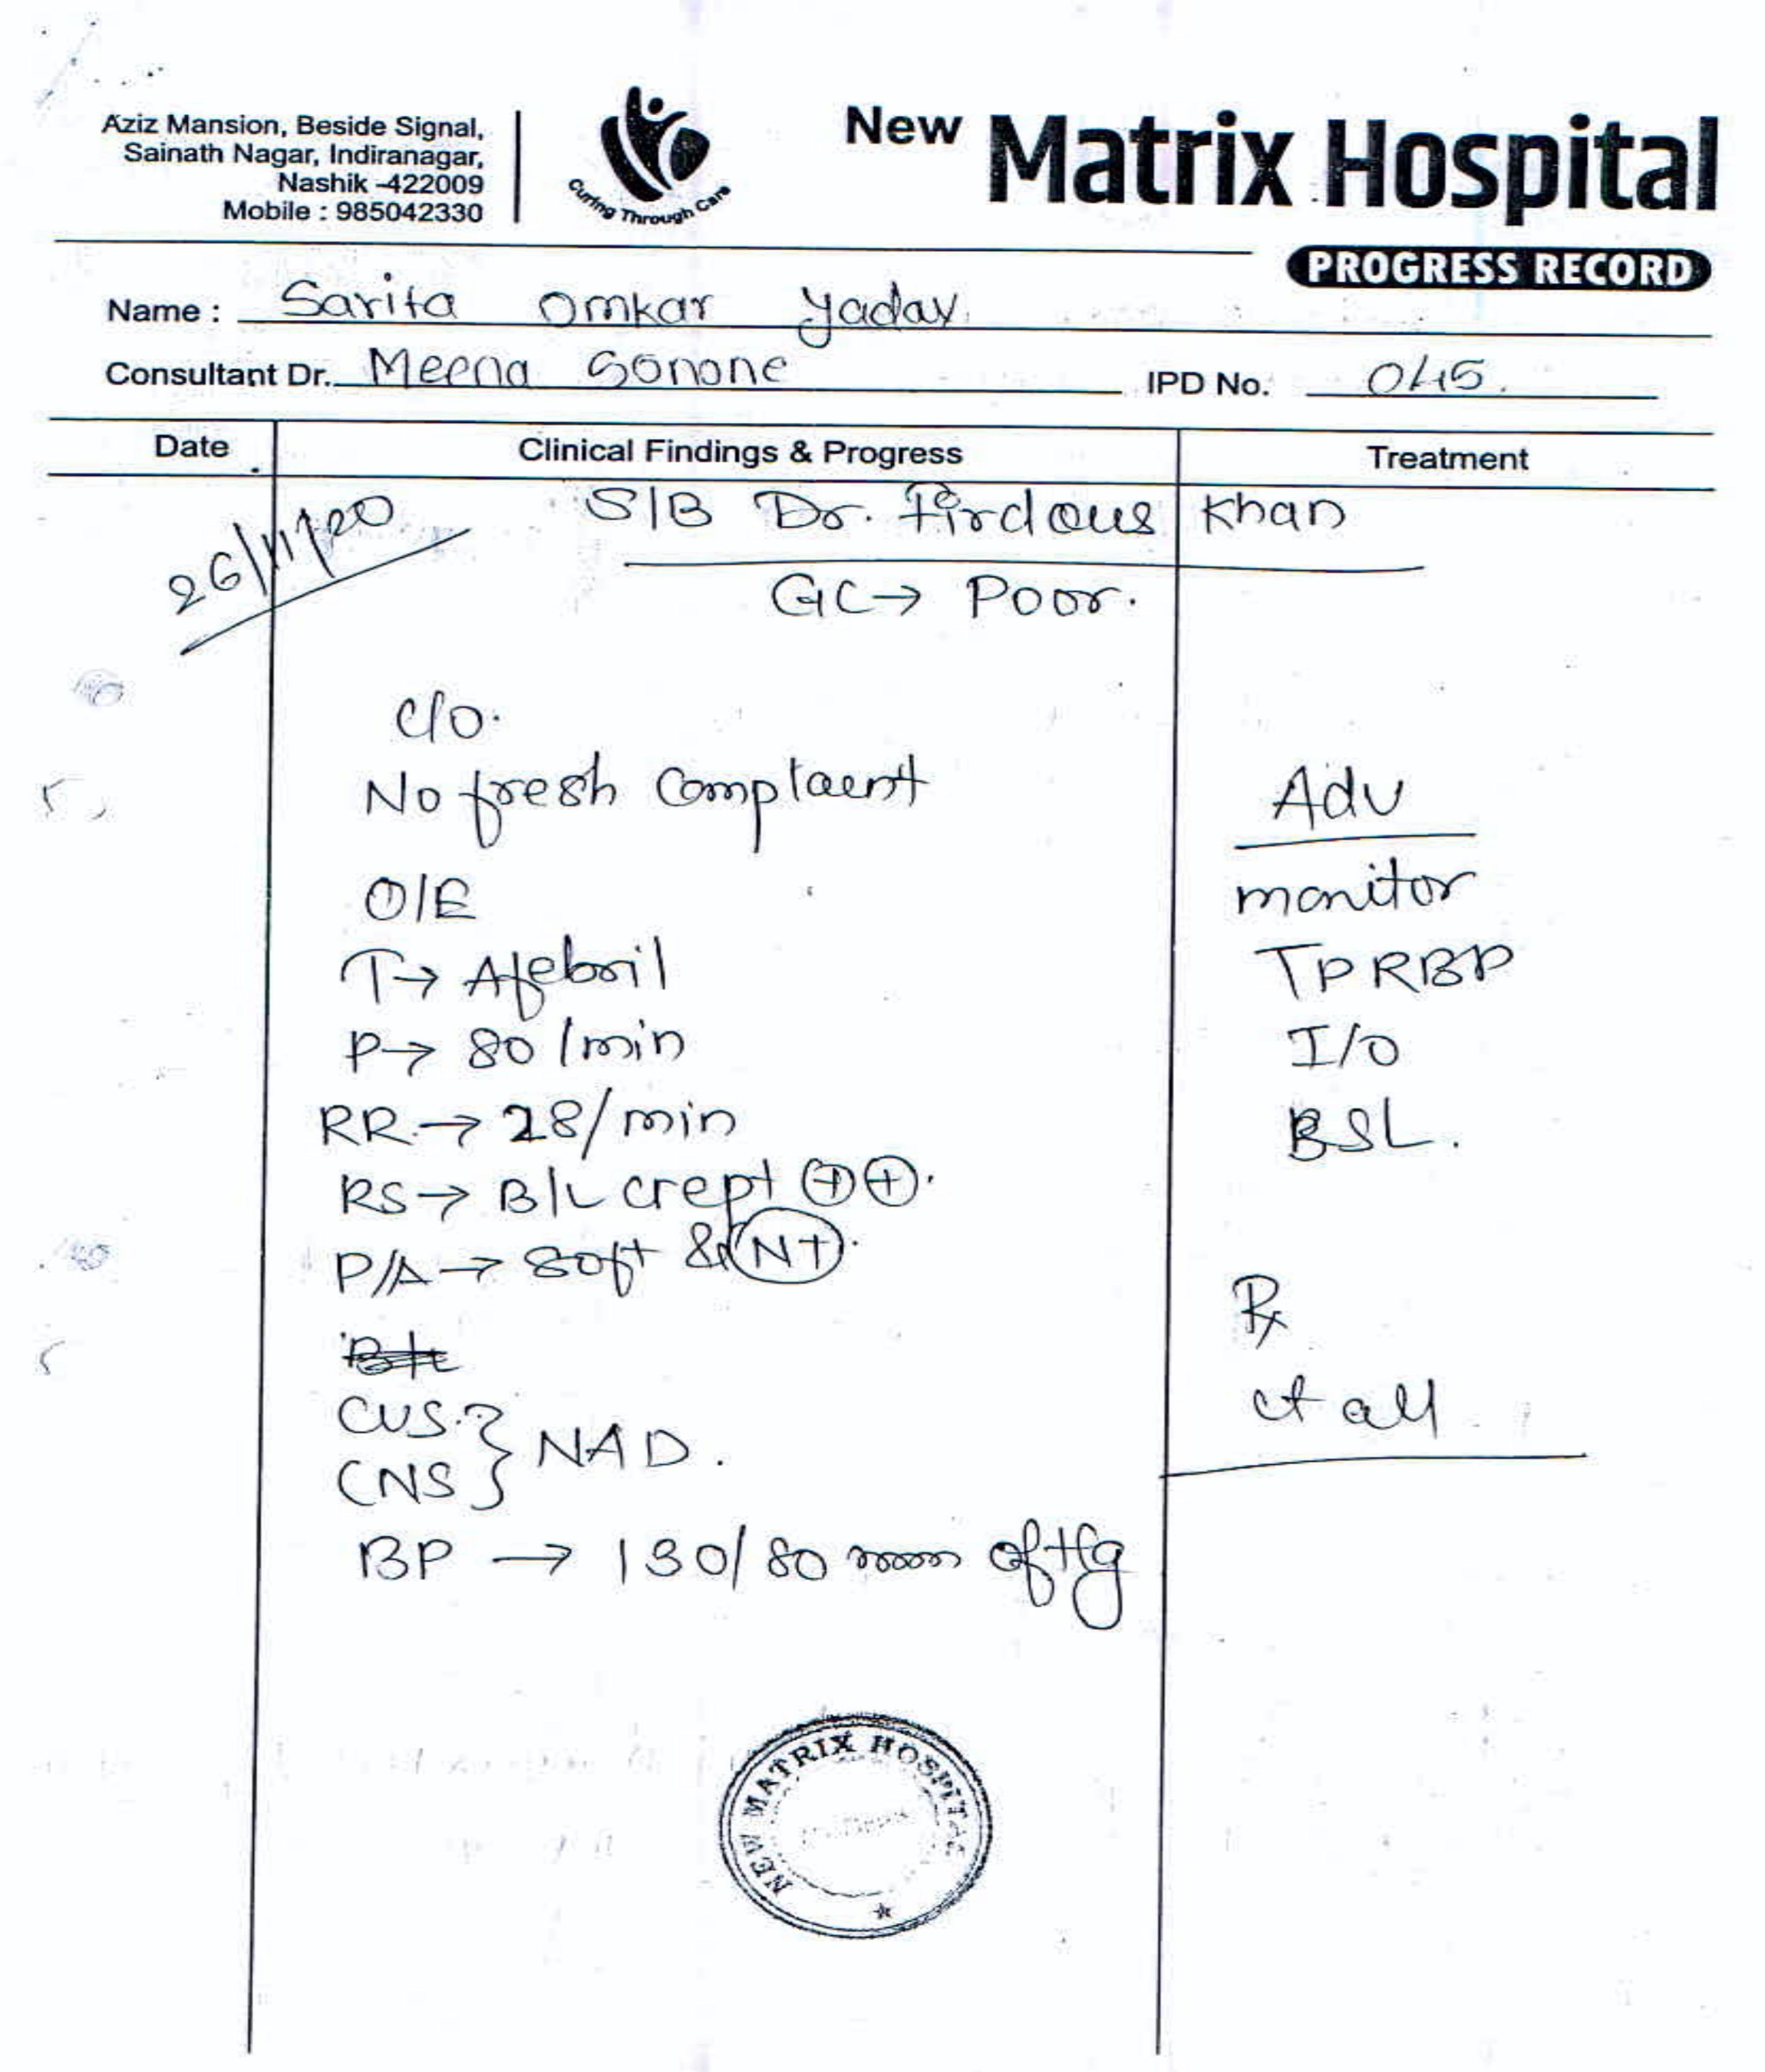 Aziz Mansion, Beside Signal,
Sainath Nagar, Indiranagar,
Nashik -422009
Mobile : 985042330
Curing Through Care
New Matrix Hospital
PROGRESS RECORD
Name : Sarita Omkar Yadav.
Consultant Dr. Meena Sonone IPD No. 045.
Date Clinical Findings & Progress Treatment
26/11/20 S/B Dr. Firdous Khan
GC→ Poor.
C/O.
No fresh Complaent
Adv
O/E
monitor
T→ Afebril
TPRBP
P→ 80/min
I/O
RR→ 28/min
BSL.
RS→ B/L crept ⊕⊕.
P/A→ Soft & NT.
Rx
CVS.
CNS } NAD.
ct all.
BP → 130/80 mm of Hg
NEW MATRIX HOSPITAL